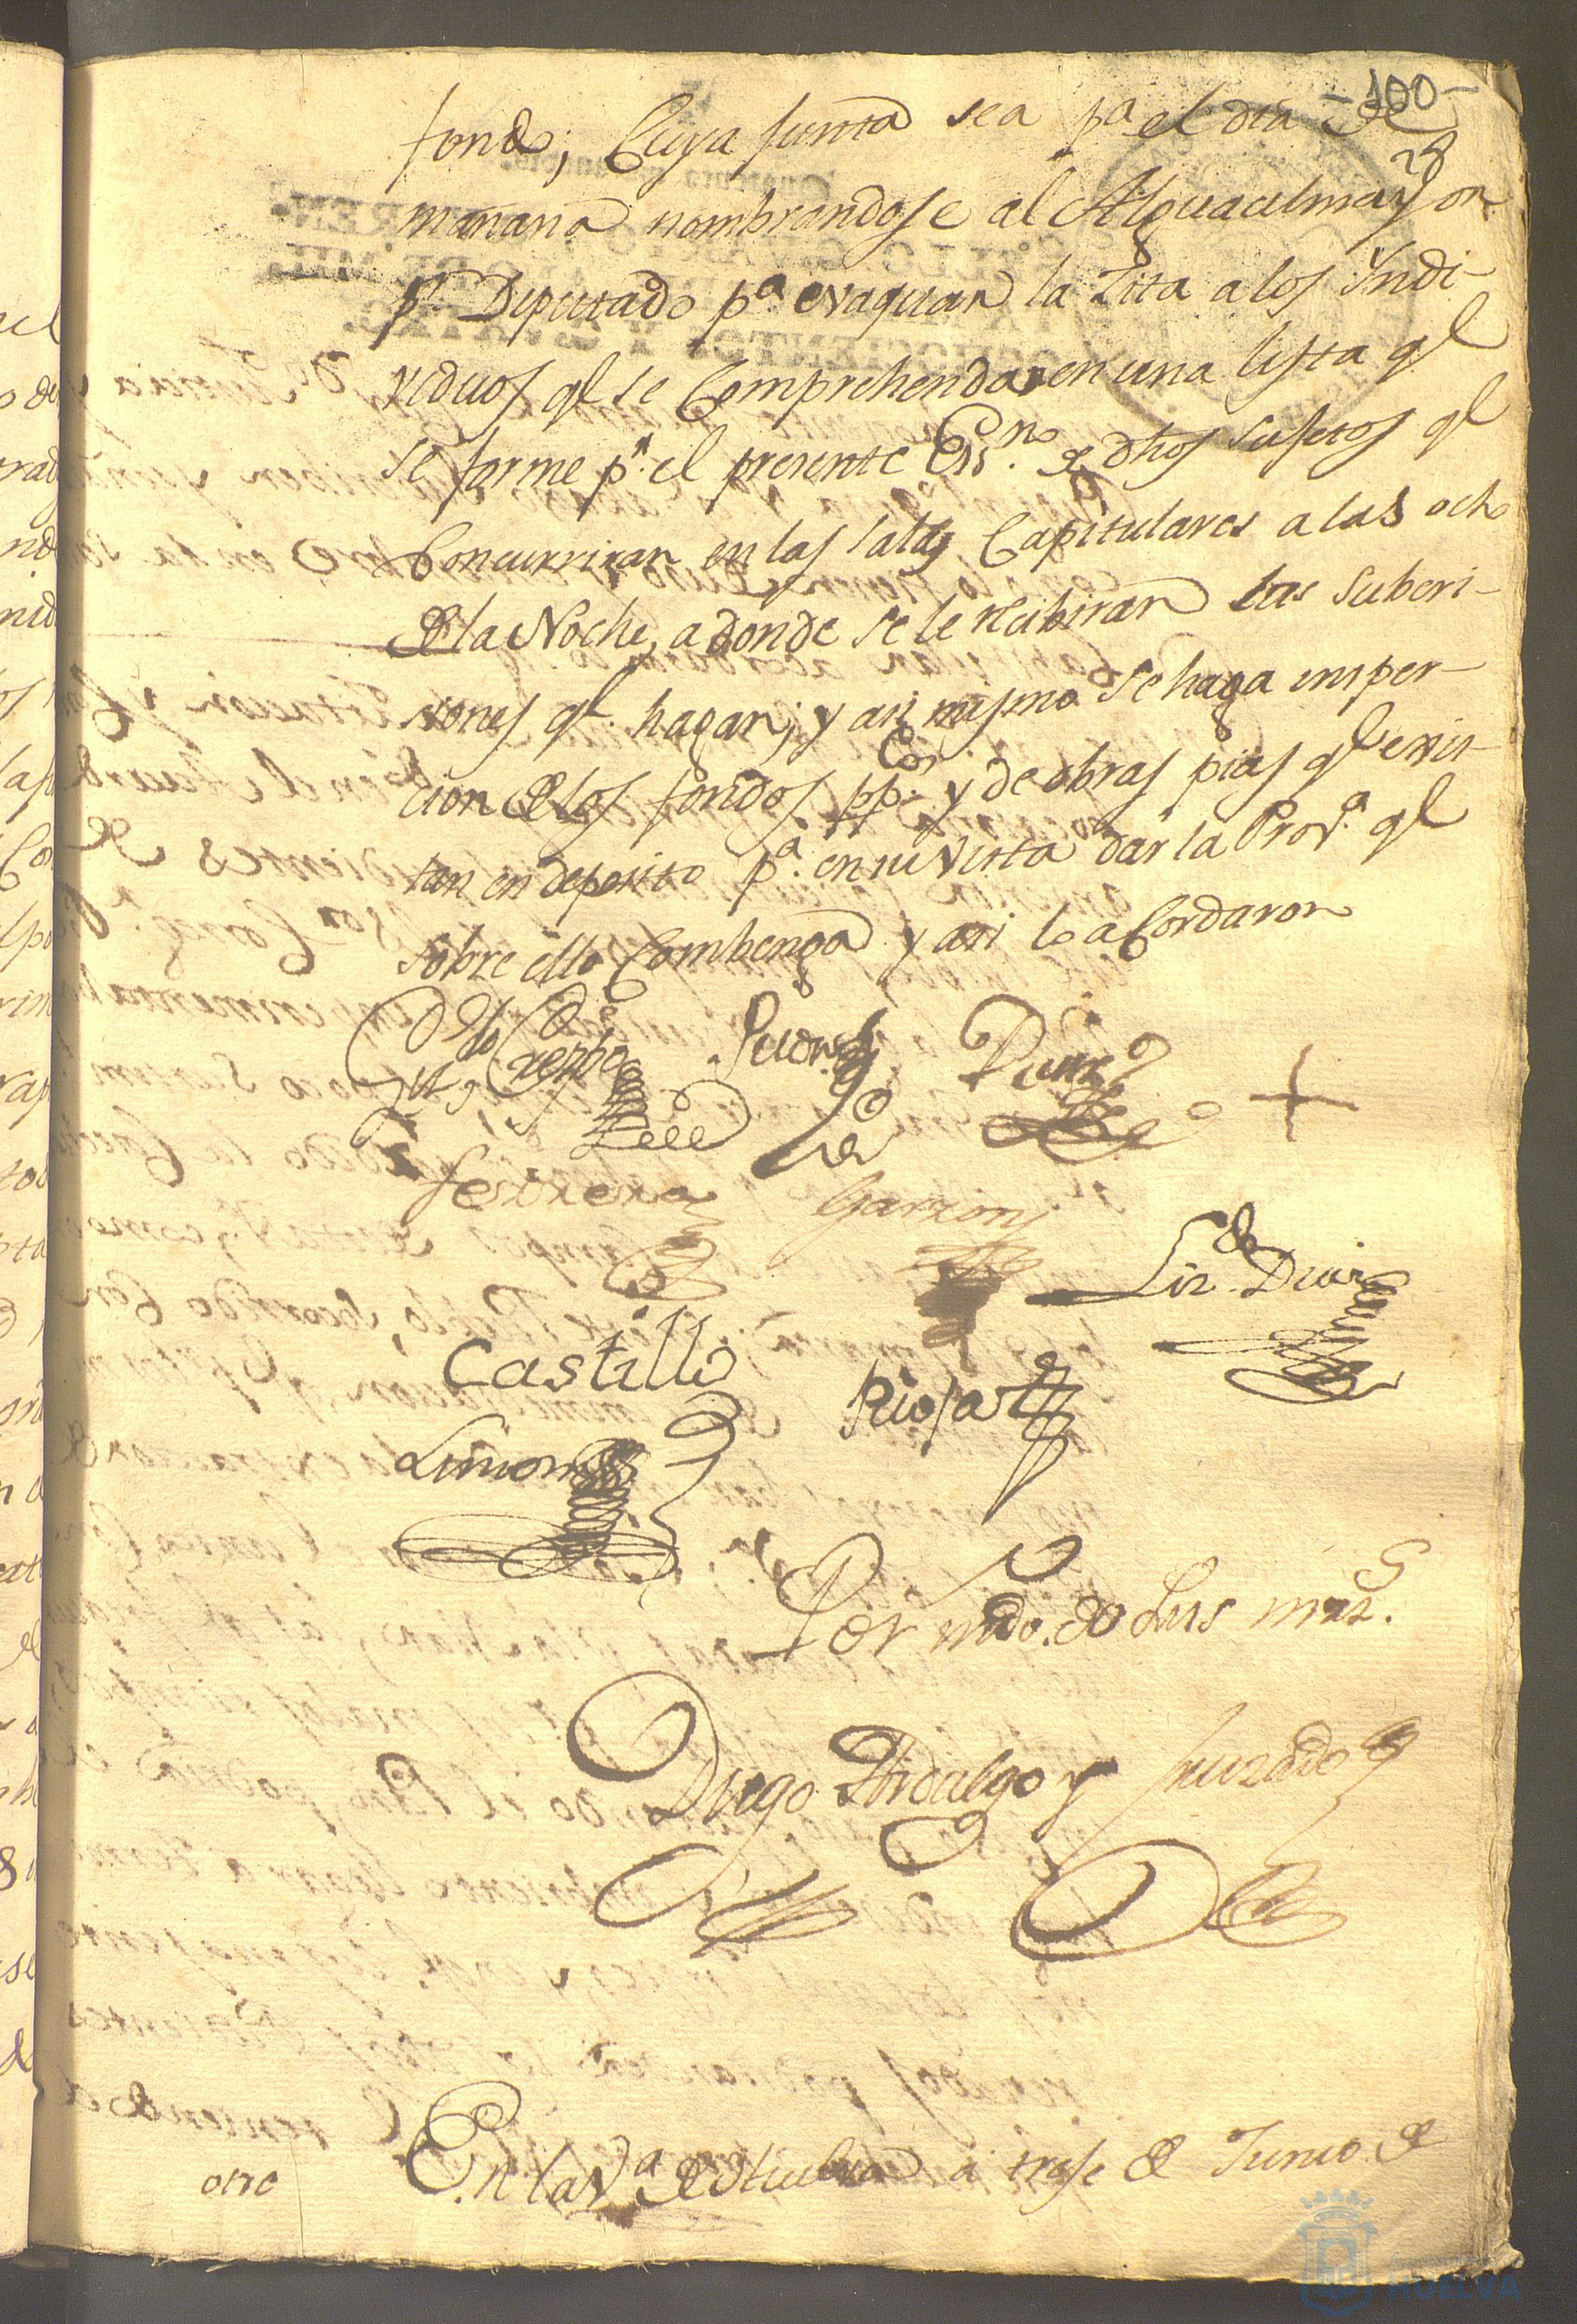 -100-
fondo; Cuya Junta sea pa. el dia de
mañana nombrandose al Alguacilmayor
pr. Deputado pa. evaquar la Zita a los Yndi-
viduos qe. se Comprehendan en una lista qe.
se forme pr. el presente Essno. de dhos sujetos qe.
Concurriran en las Salas Capitulares a las ocho
de la Noche, a donde se le recibiran las Subcri-
ciones qe. hagan; y asi mismo se haga insper-
cion de los fondos ppcos. y de obras pias qe. exis-
tan en deposito pa. en su Vista dar la Prova. qe.
sobre ello Combenga y asi lo aCordaron
Crespo
ferrera
Garzon
Liz.do Diaz
Castillo
Limon
Por mdo. de Luis
Diego Hidalgo y
otro
En la Va. de Huelva a trese de Junio de
HUELVA